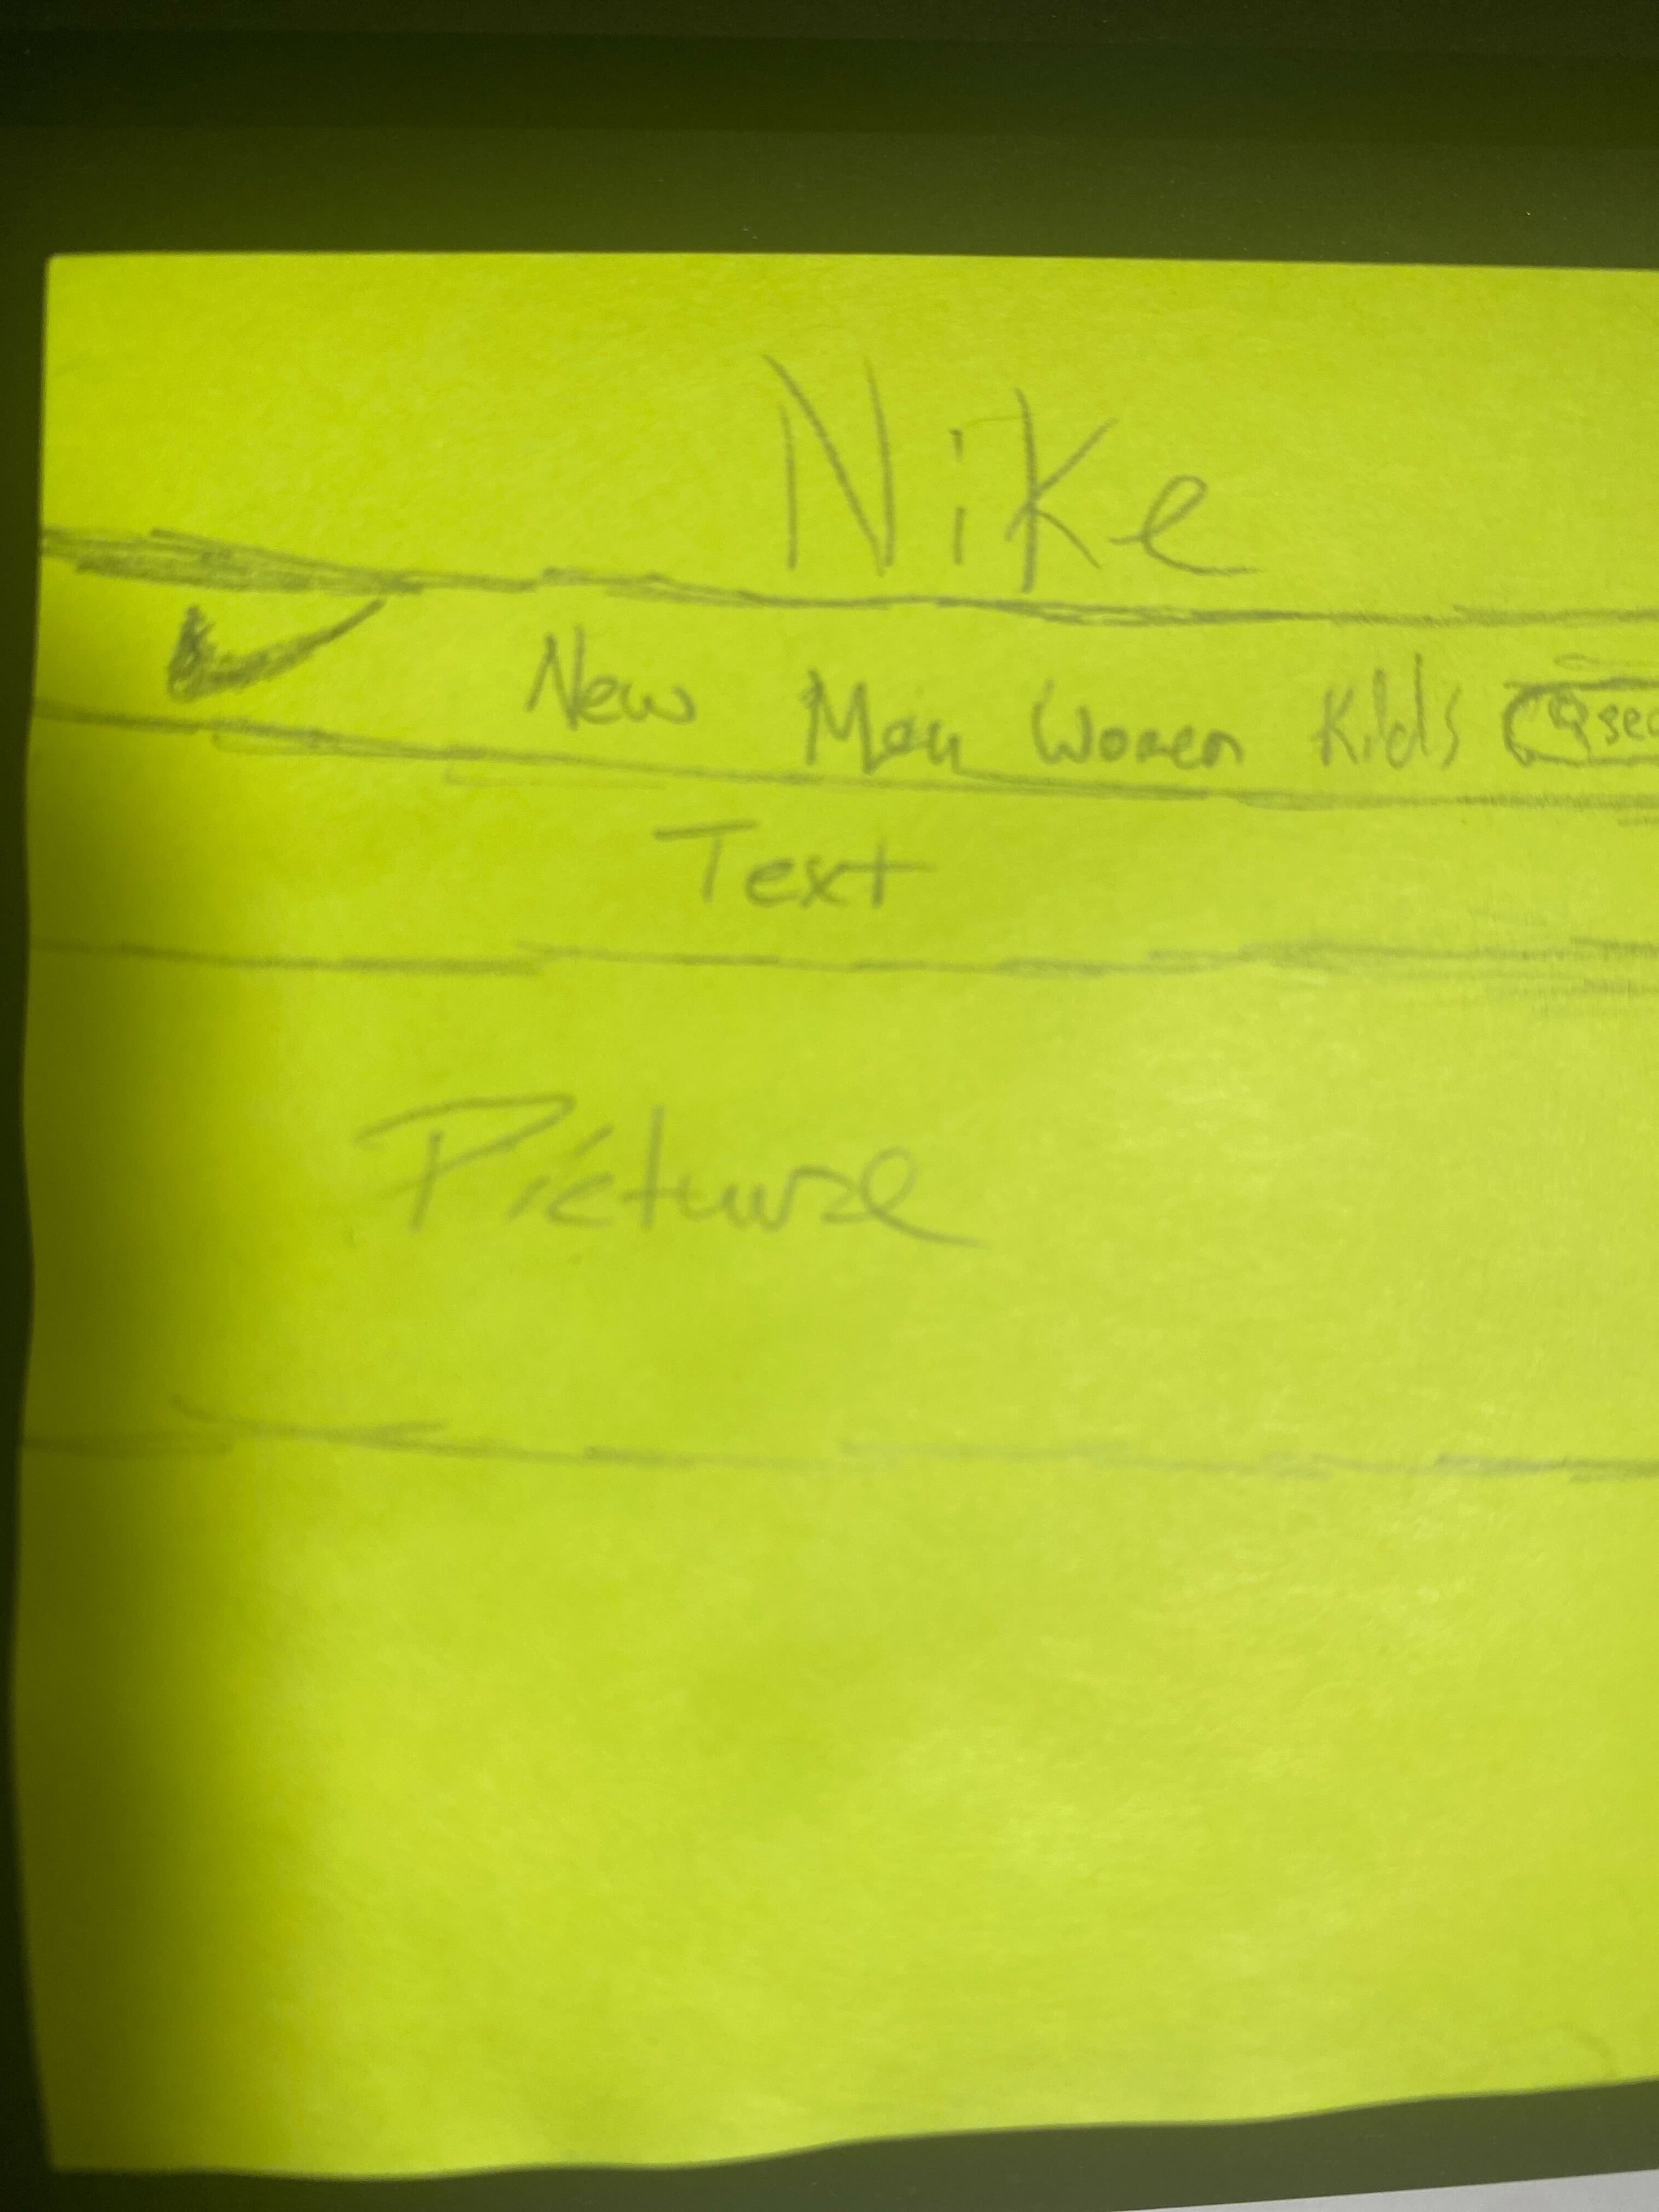 Nike
New Men Women Kids sec
Text
Picture